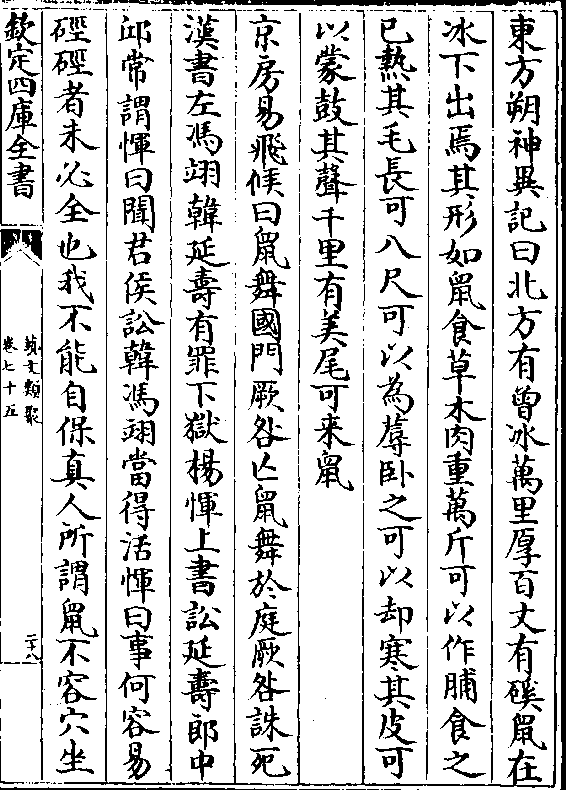 東方朔神異記曰北方有曾冰萬里厚百丈有磎鼠在
冰下出焉其形如鼠食草木肉重萬斤可以作脯食之
已熱其毛長可八尺可以為蓐卧之可以却寒其皮可
以蒙鼓其聲千里有美尾可来鼠
京房易飛候曰鼠舞國門厥咎亡鼠舞於庭厥咎誅死
漢書左馮翊韓延壽有罪下獄楊惲上書訟延壽郎中
邱常謂惲曰聞君侯訟韓馮翊當得活惲曰事何容易
硜硜者未必全也我不能自保真人所謂鼠不容穴坐
欽定四庫全書
藝文類聚
卷七十五
二十八